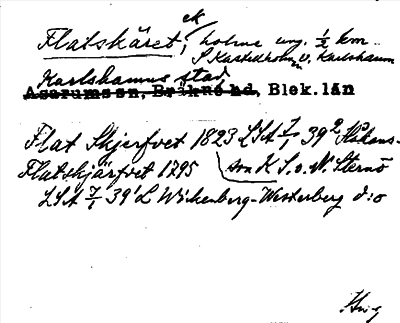 ek
Flatskäret, holme ung. ½ km
S Kastellholmen, Karlshamn
Karlshamns stad
Asarumssn, Bräkne hd, Blek. län
Flat Skjerfvet 1823 LSA 7/1 39²
Flatskjärfvet 1795 av K S. o. N. Sternö
LSA 7/1 39¹ L Wickenberg-Westerberg d:o